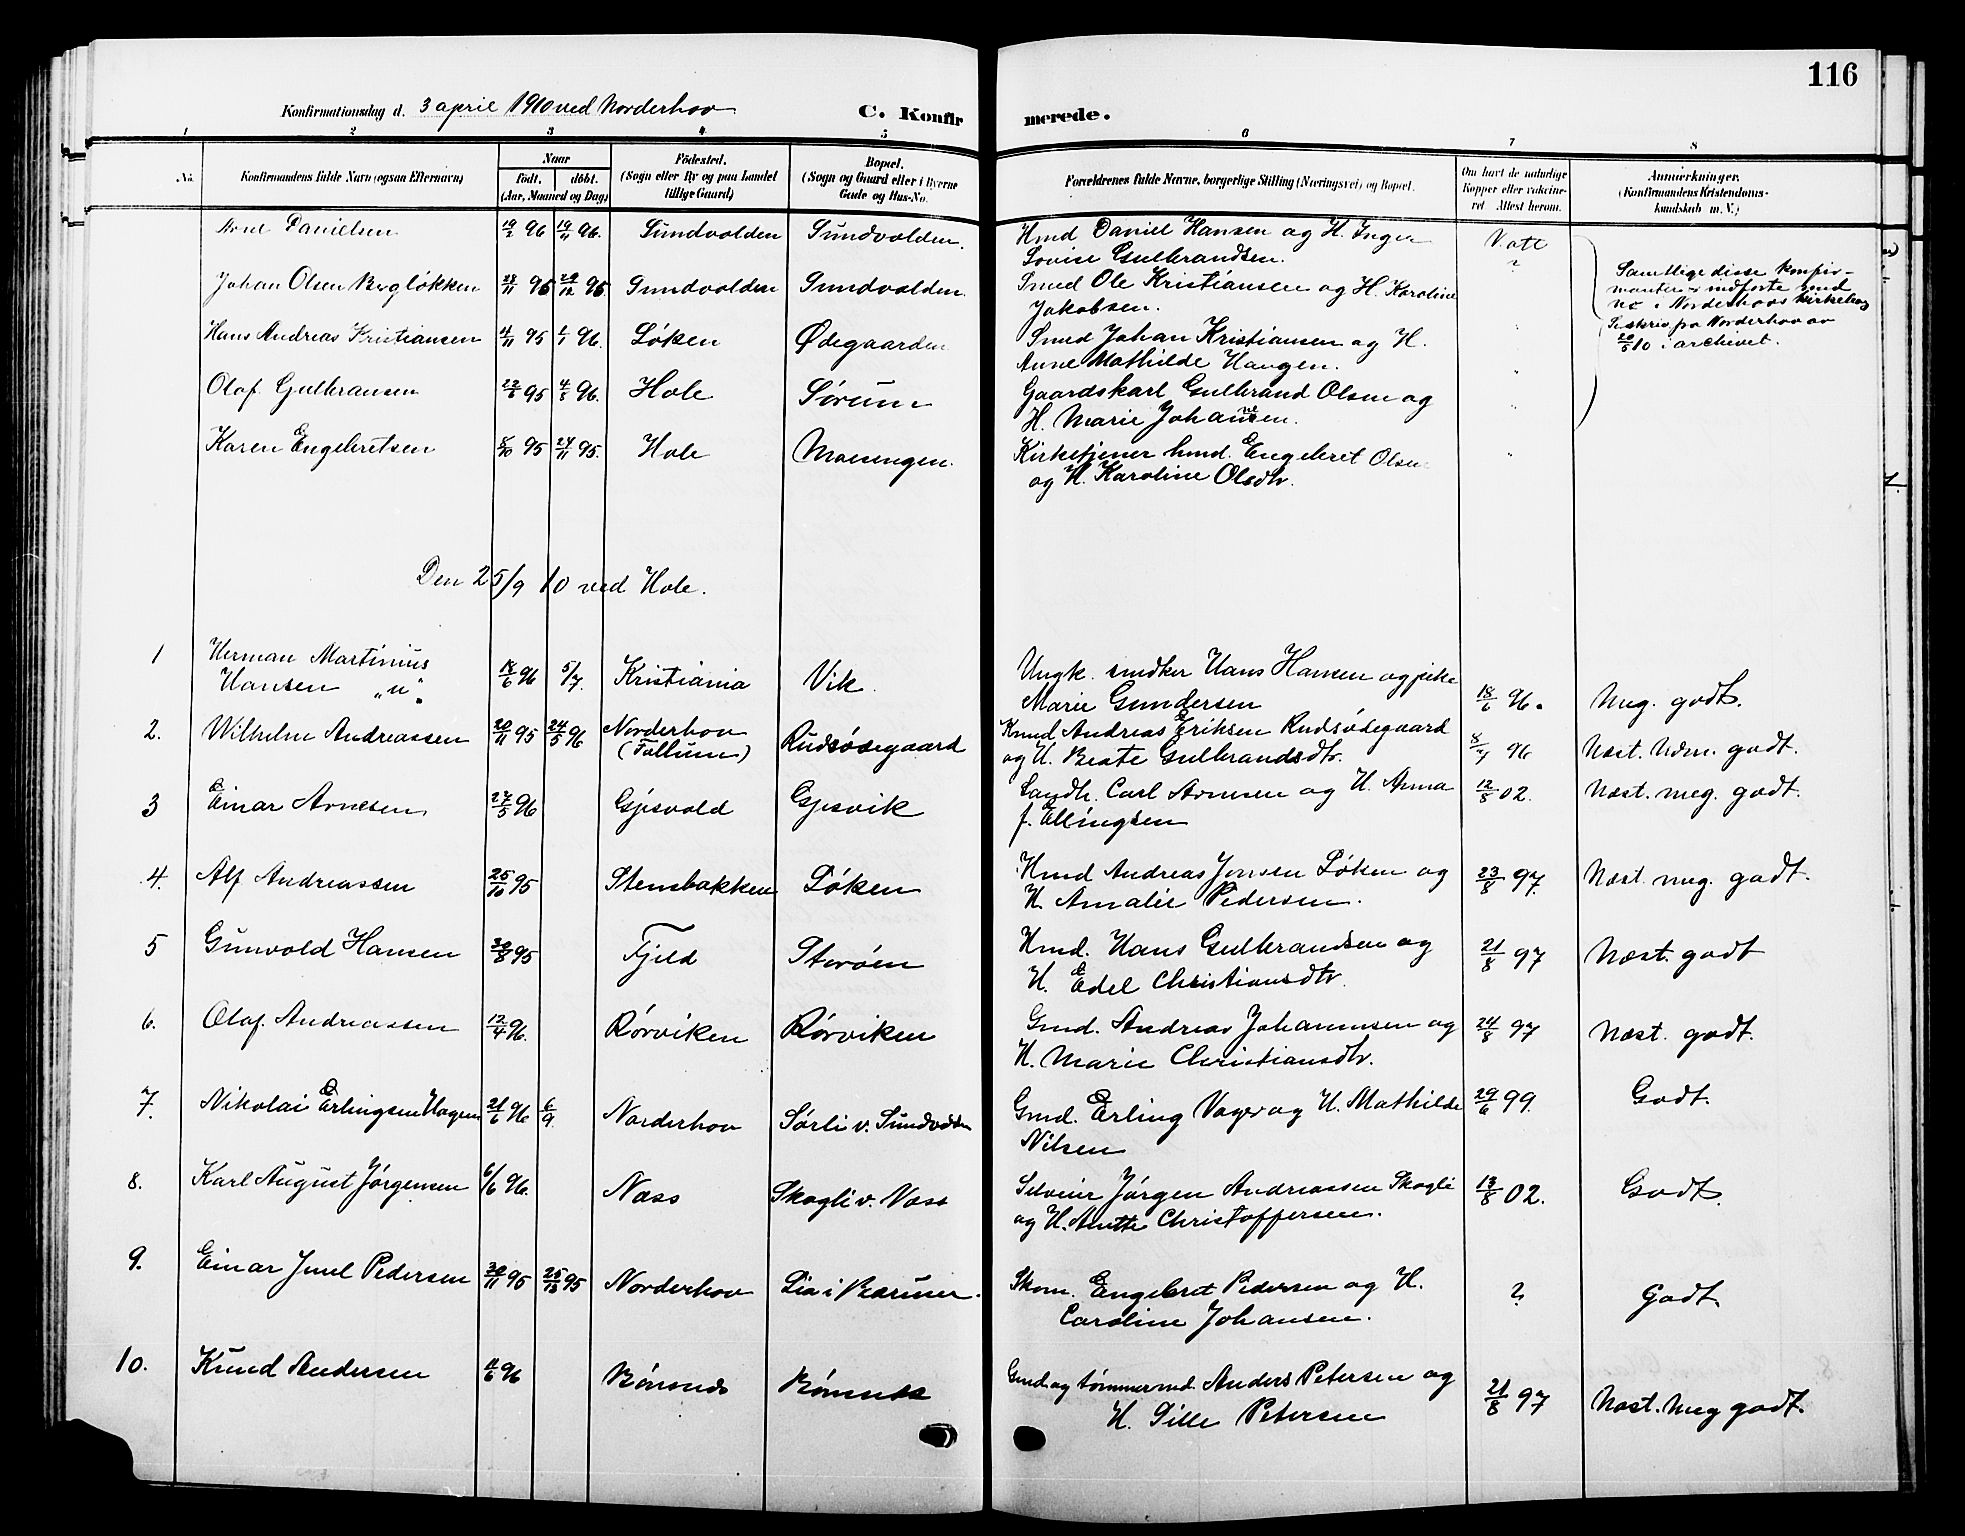 116
Konfirmationsdag d. 3 april 1910 ved Norderhov
C. Konfirmerede.
1 2 3 4 5 6 7 8
No.
Konfirmandens fulde Navn (ogsaa Efternavn)
Naar
födt, döbt.
(Aar, Maaned og Dag)
Födested.
(Sogn eller By og paa Landet
tillige Gaard)
Bopæl.
(Sogn og Gaard eller i Byerne
Gade og Hus-No.
Forældrenes fulde Navne, borgerlige Stilling (Næringsvei) og Bopæl.
Om havt de naturlige
Kopper eller vakcine-
ret Attest herom.
Anmærkninger.
(Konfirmandens Kristendoms-
kundskab m. V.)
Danielsen 96 96. Sundvolden Sundvolden. Hmd Daniel Hansen og H. Inger
Lovise Gulbrandsen.
Johan Olsen Bergløkken Sundvolden Sundvolden. Smed Ole Kristiansen og H. Karoline
Jakobsen.
Hans Andreas Kristiansen 4/11 95 96. Løken Ødegaarden Smed Johan Kristiansen og H.
Anne Mathilde Haugen.
Olaf Gulbransen 95 96. Hole Sørum Gaardskarl Gulbrand Olsen og
H. Marie Johannesen.
Karen Engebretsen 95 24/11 95. Hole Moesengen. Kirketjener hmd. Engebret Olsen
og H. Karoline Olsdtr.
Samtlige disse konfir-
manter indførte
i Norderhovs kirkebog
skriv fra Norderhov av
10 i archivet.
Den 25/9 10 ved Hole.
1 Herman Martinius
Hansen „u" 18/6 96 5/7. Kristiania Vik. Ungk. snedker Hans Hansen og pike
Marie Gundersen 18/6 96. Meg. godt.
2. Wilhelm Andreassen 20/11 95 24/5 96 Norderhov
(Tollum) Rudsødegaard Andreas Eriksen Rudsødegaard
og H. Beate Gulbrandsdtr. 96 Næst. udm. godt.
3 Einar Arnesen 27/5 96 Gjesvold Gjesvik Landh. Carl Arnesen og H. Anna
f. Ellingsen 12/8 02. Næst. meg. godt.
4. Alf Andreassen 25/10 95 Stensbakken Løken Hmd Andreas Jonsen Løken og
H. Amalie Pedersen. 23/8 97. Næst. meg. godt.
5 Gunvold Hansen 30/8 95 Fjeld Storøen Hmd. Hans Gulbrandsen og
H. Edel Christiansdtr. 21/8 97 Næst. godt
6. Olaf Andreassen 12/4 96. Rørviken Rørviken Gmd. Andreas Johannesen og
H. Marie Christiansdtr. 24/8 97 Næst. godt.
7. Nikolai Erlingsen Hagen 21/6 96 6/9. Norderhov Sørli v. Sundvolden Gmd. Erling og H. Mathilde
Nilsen 29/6 99. Godt.
8. Karl August Jørgensen 6/6 96. Næss Skogli v. Næss Jørgen Andreassen Skogli
og H. Anette Christoffersen. 13/8 02. Godt.
9. Einar Juel Pedersen 30/11 95 25/12 95 Norderhov Lia i Bærum. Skom. Engebret Pedersen og H.
Caroline Johansen. ? Godt.
10. Knud Andersen 96 Bønsnes Bønsnes Gmd. og tømmermd. Anders Petersen og
H. Sille Petersen 21/8 97 Næst. meg godt.